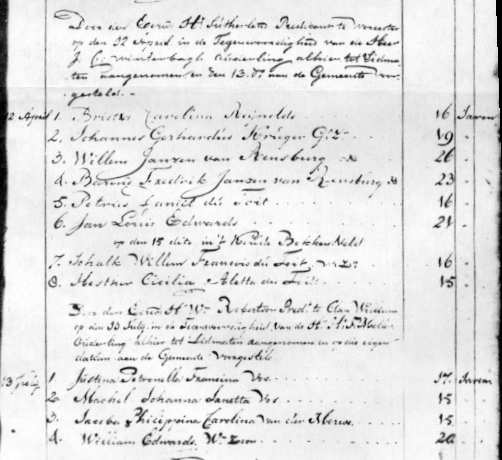 Door den Eerw. Hr. Sutherland Predikant te Worcester
op den 12 April in de Tegenwoordigheid van de Heer
J. C. Wintenbagh Ouderling alhier tot Lidma-
ten aangenomen en den 13. do. aan de Gemeente voor
gesteld.
12 April 1. Carolina Reijnolds 16 Jaren
2. Johannes Gerhardus Kruger Gz. 19 "
3. Willem Janzen van Rensburg 26 "
4. Barend Fredrik Janzen van Rensburg 23 "
5. Petrus Daniel du Toit 16 "
6. Jan Louis Edwards 21 "
op den 15 dito in 't Koude Bokkeveld
7. Schalk Willem Francois du Toit 16 "
8. Hester Cicilia Aletta du Toit 15
Door den Eerw. Hr. Wm. Robertson Predt. te Clan William
op den 13 Julij in de Teegenwoordigheid van de Hr.
Ouderling alhier tot Lidmaten aangenomen en op die eigen
datum aan de Gemeente voorgesteld
13 Julij 1. Justina Petronella Francina Vos 17 Jaren
2. Machel Johanna Sanetta Vos 15 "
3. Jacoba Philippina Carolina van der Merwe 15 "
4. William Edwards Wm. Zoon 20 "